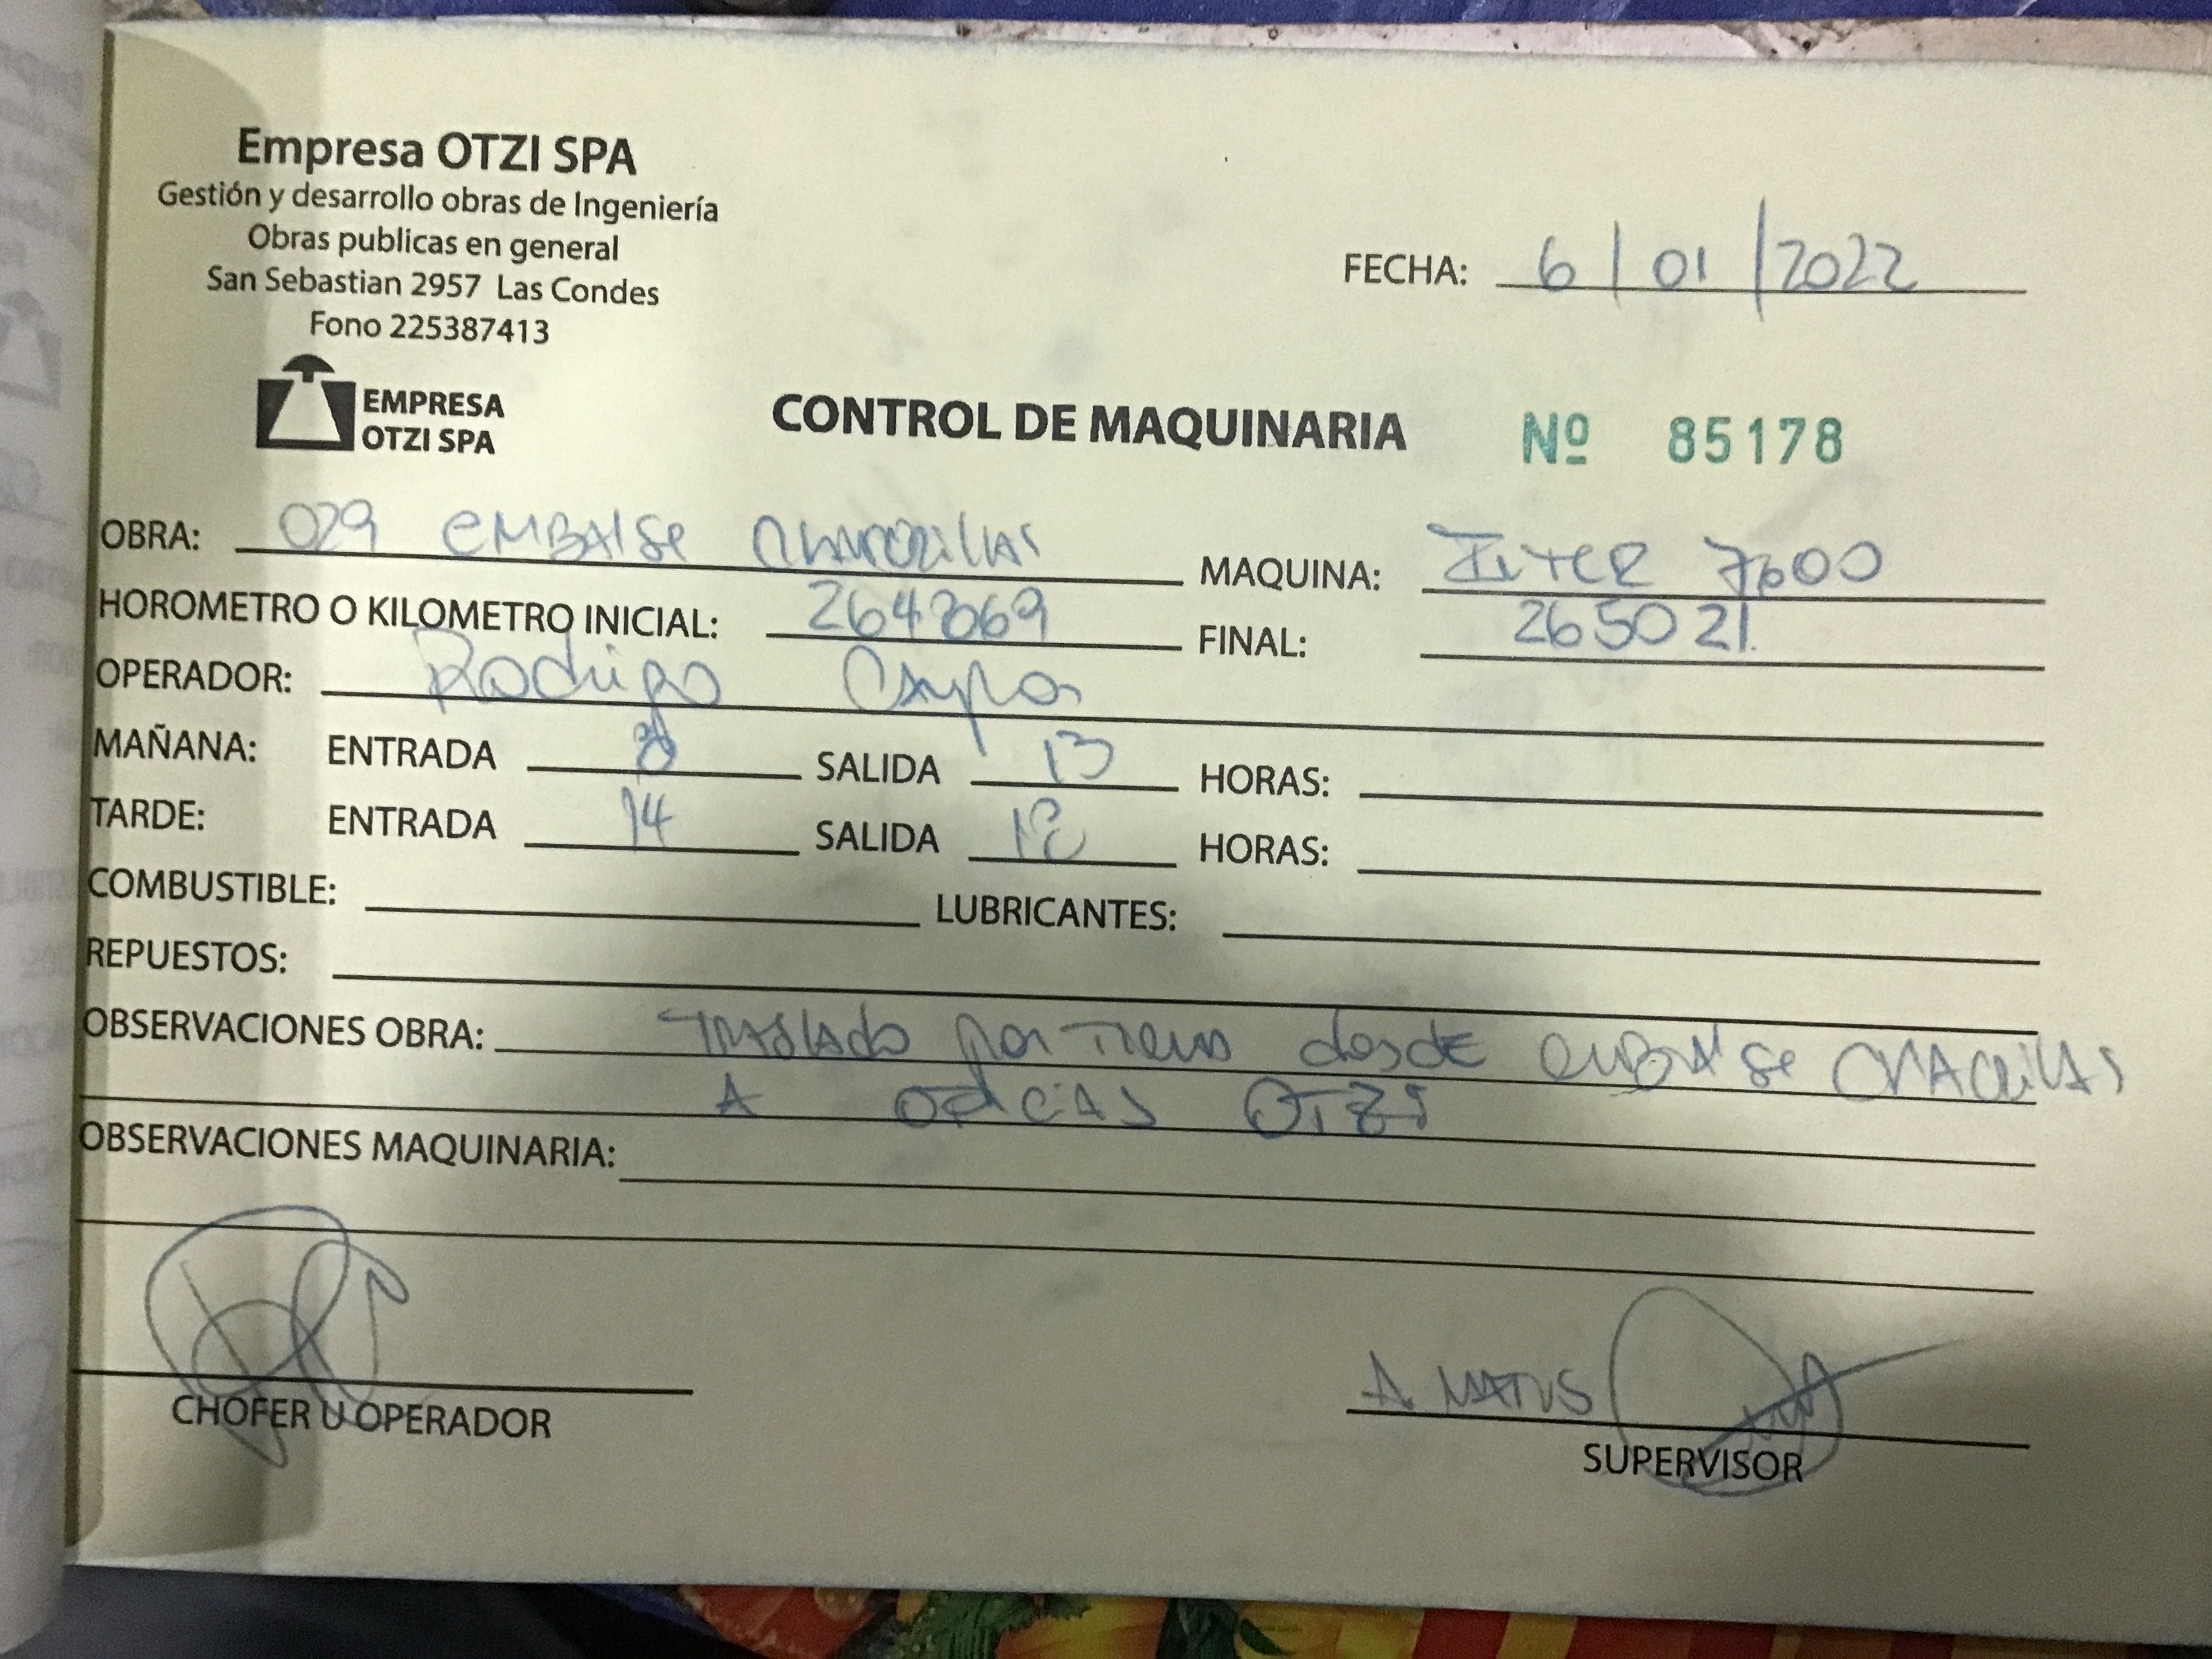 Empresa OTZI SPA
Gestión y desarrollo obras de Ingeniería
Obras publicas en general
San Sebastian 2957 Las Condes
Fono 225387413
FECHA: 6/01/2022
EMPRESA
OTZI SPA
CONTROL DE MAQUINARIA Nº 85178
OBRA: 029 embalse MAQUINA: Inter 7600
HOROMETRO O KILOMETRO INICIAL: 264869 FINAL: 265021.
OPERADOR: Rodrigo
MAÑANA: ENTRADA 8 SALIDA 13 HORAS:
TARDE: ENTRADA 14 SALIDA 18 HORAS:
COMBUSTIBLE: LUBRICANTES:
REPUESTOS:
OBSERVACIONES OBRA: traslado desde embalse
A Otzi
OBSERVACIONES MAQUINARIA:
CHOFER U OPERADOR
SUPERVISOR